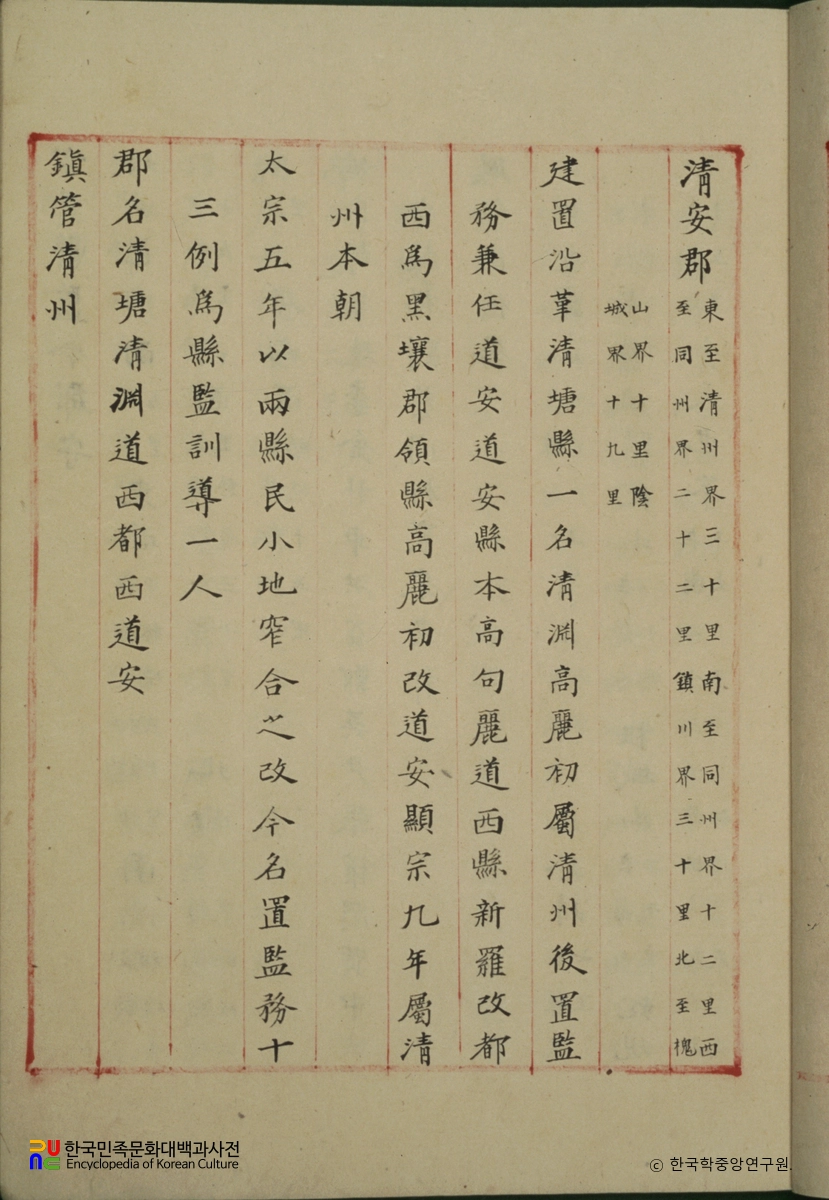 清安郡
東至清州界三十里南至同州界十二里西
至同州界二十二里鎮川界三十里北至槐
山界十里陰
城界十九里
建置沿革清塘縣一名清渊高麗初屬清州後置監
務兼任道安道安縣本高句麗道西縣新羅改都
西爲黑壤郡領縣高麗初改道安顯宗九年屬清
州本朝
太宗五年以兩縣民小地窄合之改今名置監務十
三例爲縣監訓導一人
郡名清塘清渊道西都西道安
鎮管清州
한국민족문화대백과사전
Encyclopedia of Korean Culture
© 한국학중앙연구원.